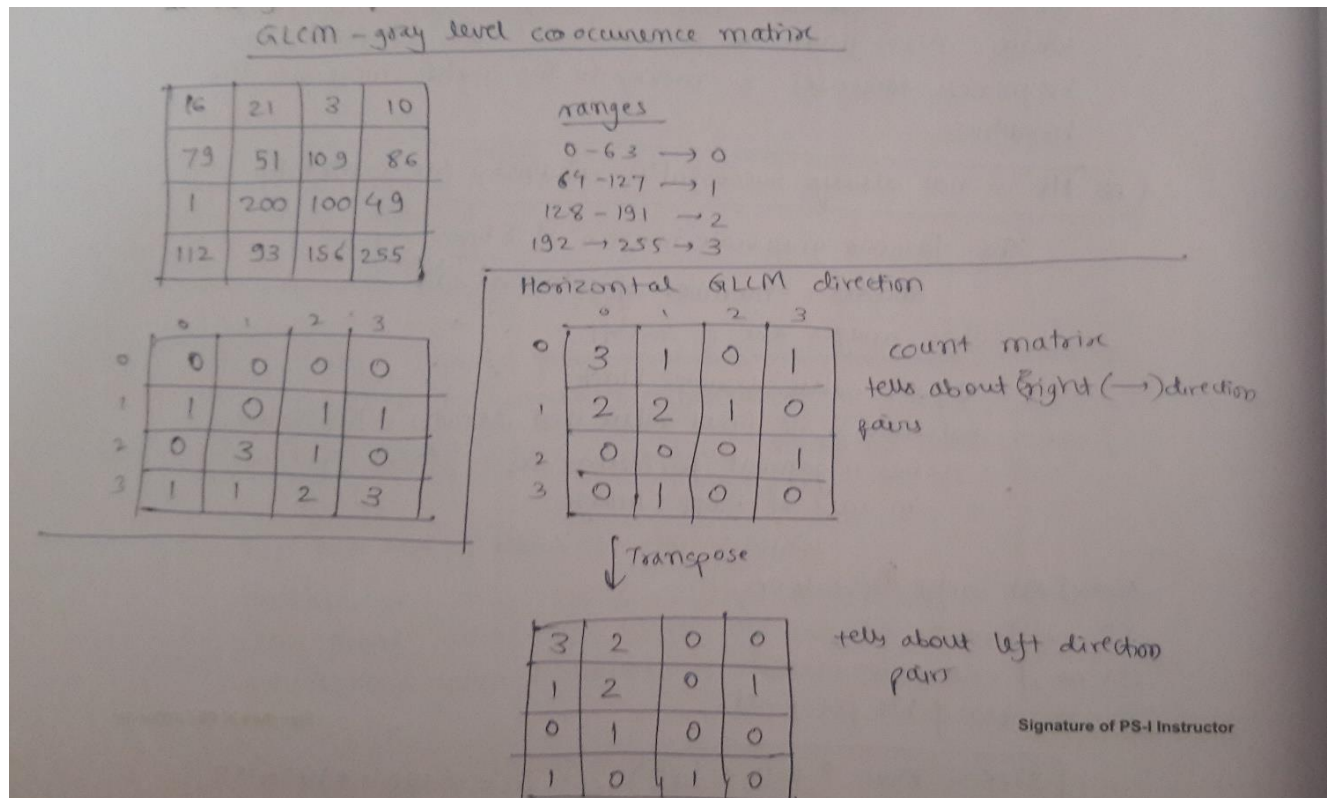 GLCM - gray level cooccurence matrix
16 21 3 10
79 51 109 86
1 200 100 49
112 93 156 255
ranges
0-63 → 0
64-127 → 1
128-191 → 2
192 → 255 → 3
0 1 2 3
0 0 0 0 0
1 1 0 1 1
2 0 3 1 0
3 1 1 2 3
Horizontal GLCM direction
0 1 2 3
0 3 1 0 1
1 2 2 1 0
2 0 0 0 1
3 0 1 0 0
count matrix
tells about right (→) direction
pairs
Transpose
3 2 0 0
1 2 0 1
0 1 0 0
1 0 1 0
tells about left direction
pairs
Signature of PS-I Instructor